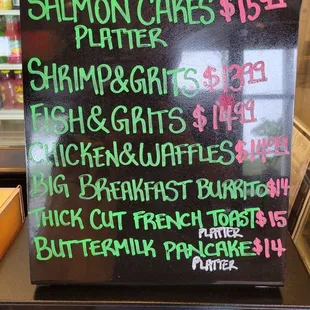 SALMON CAKES $15.99
PLATTER
SHRIMP&GRITS $13.99
FISH&GRITS $14.99
CHICKEN&WAFFLES $14.99
BIG BREAKFAST BURRITO $14
THICK CUT FRENCH TOAST $15
PLATTER
BUTTERMILK PANCAKE $14
PLATTER